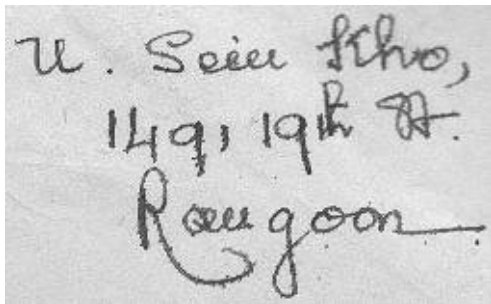 U. Sein Kho,
149, 19th St.
Rangoon